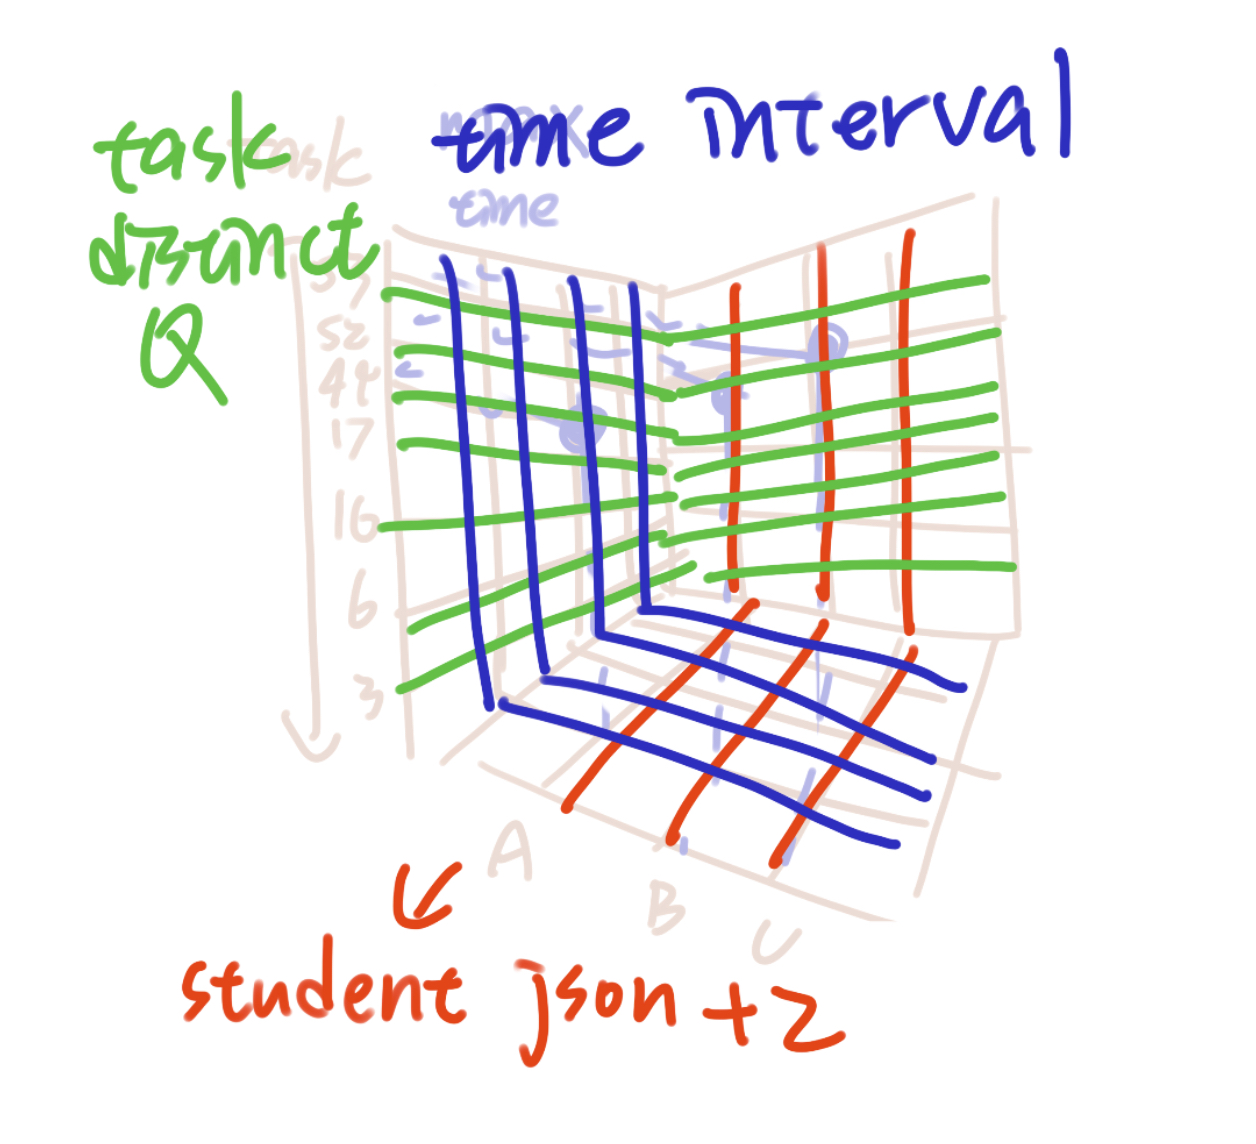 task
disjnct
Q
time interval
task
max
time
57
52
44
17
16
6
3
A
B
C
student json +2